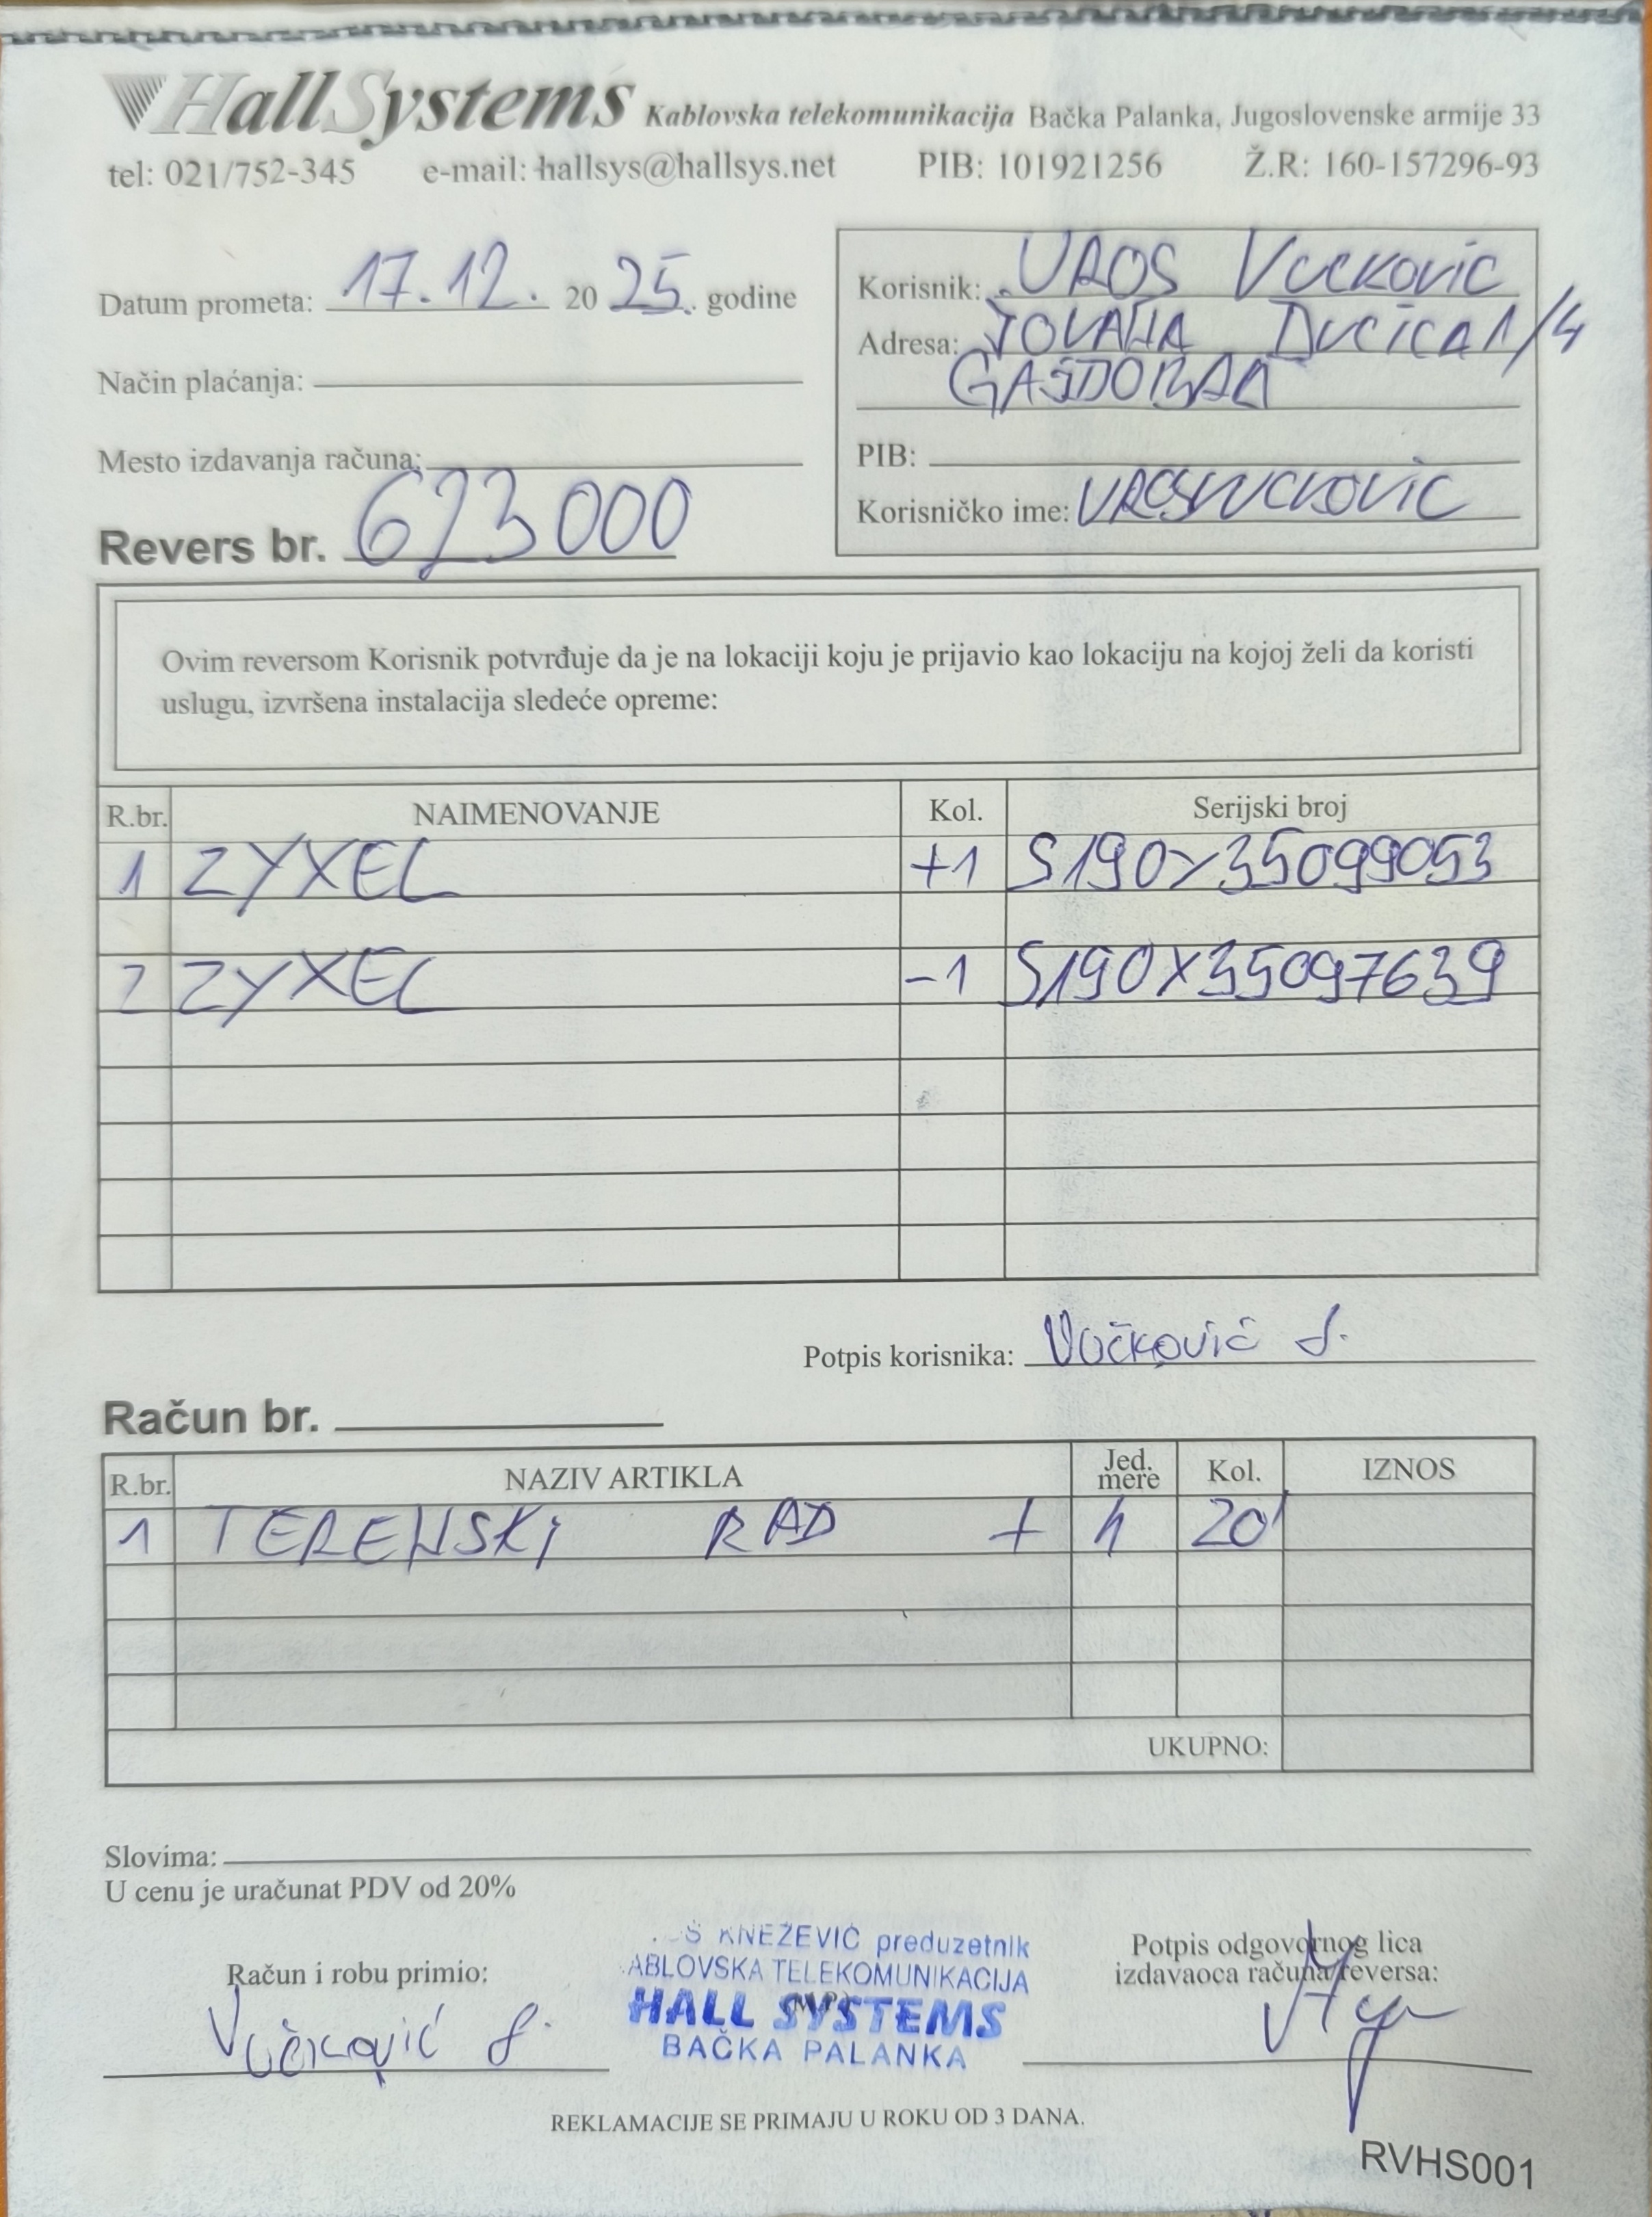 HallSystems Kablovska telekomunikacija Bačka Palanka, Jugoslovenske armije 33
tel: 021/752-345 e-mail: hallsys@hallsys.net PIB: 101921256 Ž.R: 160-157296-93
Datum prometa: 17.12. 2025. godine
Način plaćanja:
Mesto izdavanja računa:
Revers br. 623000
Korisnik: UROS VUCKOVIC
Adresa: JOVANA DUCICA 1/4
GAJDOBRA
PIB:
Korisničko ime: UROSVUCKOVIC
Ovim reversom Korisnik potvrđuje da je na lokaciji koju je prijavio kao lokaciju na kojoj želi da koristi
uslugu, izvršena instalacija sledeće opreme:
R.br. NAIMENOVANJE Kol. Serijski broj
1 ZYXEL +1 S190Y35099053
2 ZYXEL -1 S190X35097639
Potpis korisnika: Vučković S.
Račun br.
R.br. NAZIV ARTIKLA Jed. mere Kol. IZNOS
1 TERENSKI RAD + h 20'
UKUPNO:
Slovima:
U cenu je uračunat PDV od 20%
Račun i robu primio:
Vučković S.
Š KNEŽEVIĆ preduzetnik
ABLOVSKA TELEKOMUNIKACIJA
(M.P.)
HALL SYSTEMS
BAČKA PALANKA
Potpis odgovornog lica
izdavaoca računa/reversa:
REKLAMACIJE SE PRIMAJU U ROKU OD 3 DANA.
RVHS001